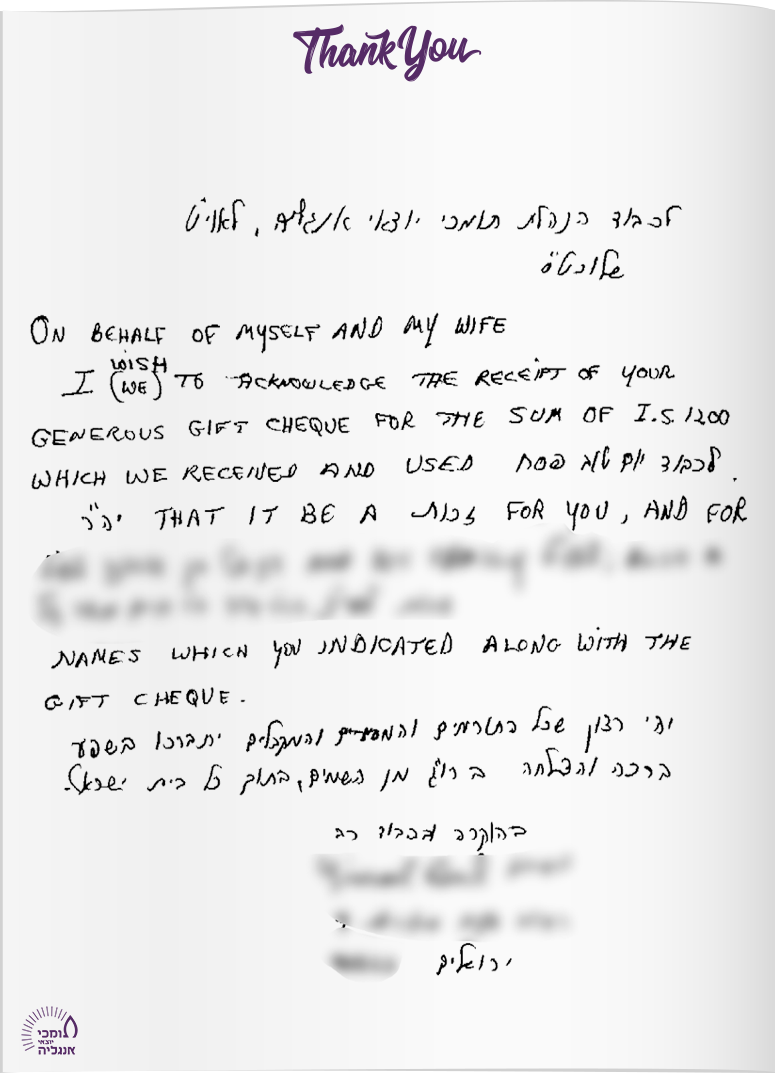 Thank You
לכבוד הנהלת תומכי יוצאי אנגליה, לאוי"ט
שלוכט"ס
ON BEHALF OF MYSELF AND MY WIFE
WISH
I (WE) TO ACKNOWLEDGE THE RECEIPT OF YOUR
GENEROUS GIFT CHEQUE FOR THE SUM OF I.S. 1200
WHICH WE RECEIVED AND USED לכבוד יום טוב פסח.
יה"ר THAT IT BE A זכות FOR YOU, AND FOR
NAMES WHICH YOU INDICATED ALONG WITH THE
GIFT CHEQUE.
יהי רצון שכל התורמים והמקבלים יתברכו בשפע
ברכה והצלחה ברו"ג מן השמים, בתוך כל בית ישראל.
בהוקרה ובכבוד רב
ירושלים
תומכי
יוצאי
אנגליה